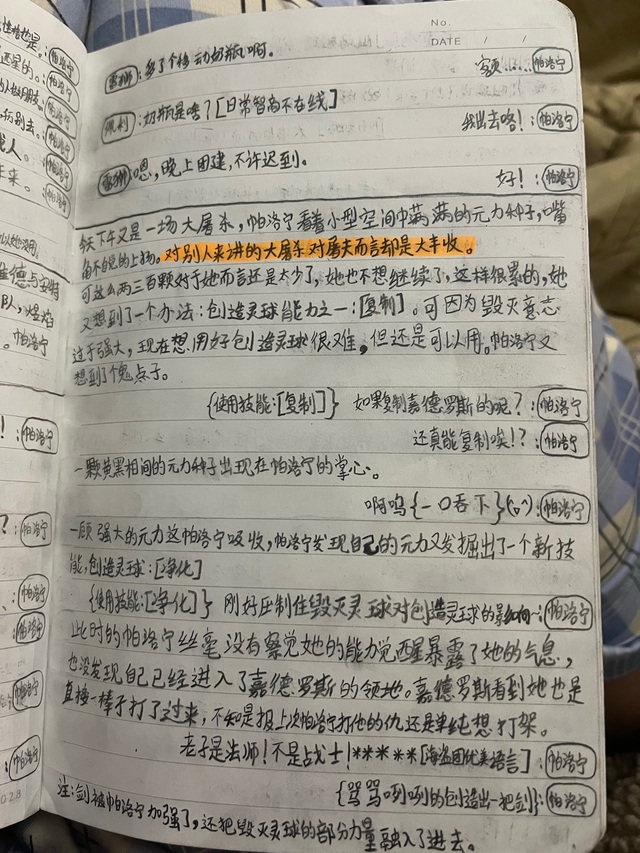 No.
DATE / /
雷狮:多了个移动奶瓶啊。
额……:帕洛宁
佩利:奶瓶是啥?[日常智商不在线]
我出去咯!:帕洛宁
雷狮:嗯,晚上团建,不许迟到。
好!:帕洛宁
今天下午又是一场大屠杀,帕洛宁看着小型空间中满满的元力种子,嘴
角不自觉的上扬。对别人来讲的大屠杀对屠夫而言却是大丰收。
可这么两三百颗对于她而言还是太少了,她也不想继续了,这样很累的,她
又想到了一个办法:创造灵球能力之一:[复制]。可因为毁灭意志
过于强大,现在想用好创造灵球很难,但还是可以用。帕洛宁又
想到了鬼点子。
{使用技能:[复制]} 如果复制嘉德罗斯的呢?:帕洛宁
还真能复制唉!?:帕洛宁
一颗黄黑相间的元力种子出现在帕洛宁的掌心。
啊呜{一口吞下}:帕洛宁
一顾强大的元力这帕洛宁吸收,帕洛宁发现自己的元力又发掘出了一个新技
能:创造灵球:[净化]
{使用技能:[净化]} 刚好压制住毁灭灵球对创造灵球的影响:帕洛宁
此时的帕洛宁丝毫没有察觉她的能力觉醒暴露了她的气息,
也没发现自己已经进入了嘉德罗斯的领地。嘉德罗斯看到她也是
直接一棒子打了过来,不知是报上次帕洛宁打他的仇还是单纯想打架。
老子是法师!不是战士!*****[海盗团优美语言]:帕洛宁
{骂骂咧咧的创造出一把剑}:帕洛宁
注:剑被帕洛宁加强了,还把毁灭灵球的部分力量融入了进去。